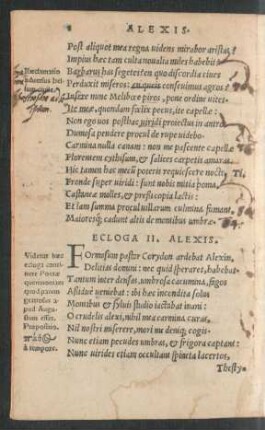 ALEXIS.
Post aliquot mea regna uidens mirabor aristas?
Impius hæc tam culta noualia miles habebit?
Barbarus has segetes? en quo discordia ciues
Perduxit miseros: en queis conseuimus agros?
Insere nunc Melibœe piros, pone ordine uites.
Ite meæ, quondam fœlix pecus, ite capellæ:
Non ego uos posthac uiridi proiectus in antro
Dumosa pendere procul de rupe uidebo.
Carmina nulla canam: non me pascente capellæ
Florentem cythisum, & salices carpetis amaras.
Hic tamen hac mecum poteris requiescere nocte
Ti.
Fronde super uiridi: sunt nobis mitia poma,
Castaneæ molles, & pressi copia lactis:
Et iam summa procul uillarum culmina fumant,
Maioresq; cadunt altis de montibus umbræ.
ECLOGA II. ALEXIS.
Formosum pastor Corydon ardebat Alexim,
Delitias domini: nec quid speraret, habebat.
Tantum inter densas, umbrosa cacumina, fagos
Assidue ueniebat: ibi hæc incondita solus
Montibus & syluis studio iactabat inani:
O crudelis alexi, nihil mea carmina curas,
Nil nostri miserere, mori me deniq; cogis.
Nunc etiam pecudes umbras, & frigora captant:
Nunc uirides etiam occultant spineta lacertos,
Thesty-
Videtur hæc
ecloga
Poeta
gratulari
pud Augu-
stum
Propositio.